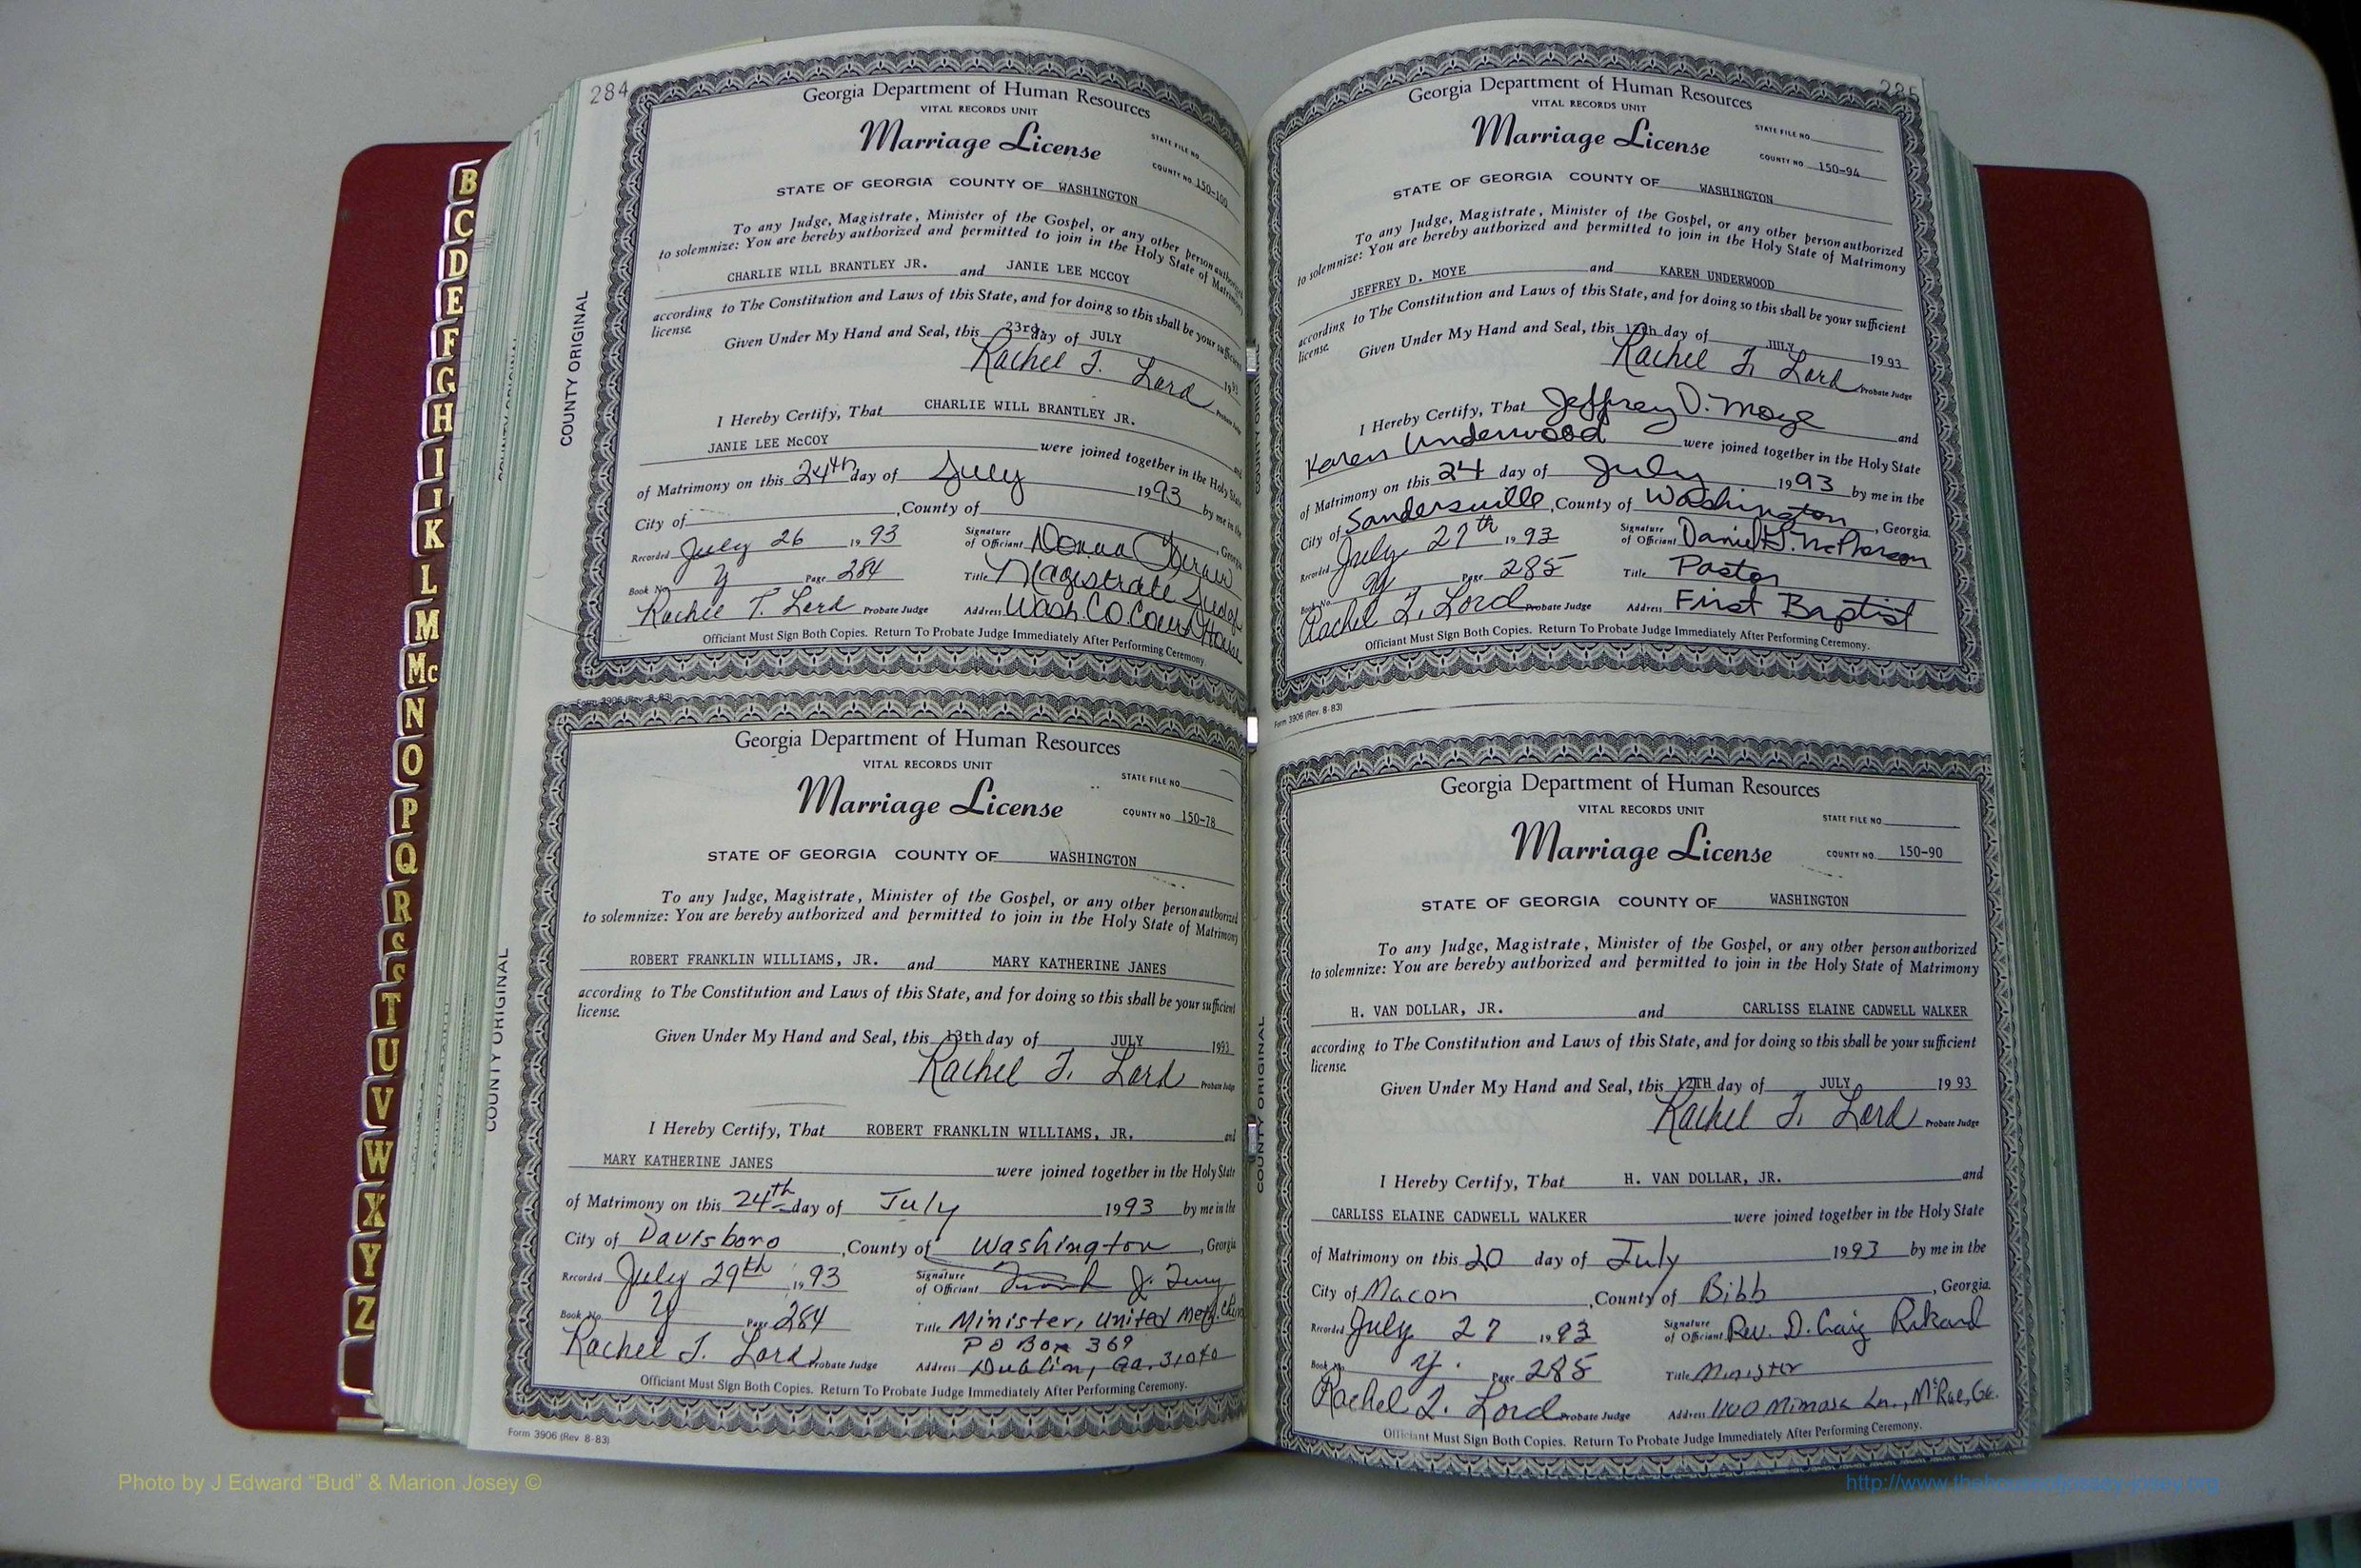 284
Georgia Department of Human Resources
VITAL RECORDS UNIT
Marriage License
STATE FILE NO.
COUNTY NO. 150-100
STATE OF GEORGIA COUNTY OF WASHINGTON
To any Judge, Magistrate, Minister of the Gospel, or any other person authorized
to solemnize: You are hereby authorized and permitted to join in the Holy State of Matrimony
CHARLIE WILL BRANTLEY JR. and JANIE LEE MCCOY
according to The Constitution and Laws of this State, and for doing so this shall be your sufficient
license.
Given Under My Hand and Seal, this 23rd day of JULY 1993
Rachel T. Lord Probate Judge
I Hereby Certify, That CHARLIE WILL BRANTLEY JR. and
JANIE LEE McCOY were joined together in the Holy State
of Matrimony on this 24th day of July 1993 by me in the
City of , County of , Georgia
Recorded July 26 1993 Signature of Officiant Donna
Book No. Y Page 284 Title Magistrate Judge
Rachel T. Lord Probate Judge Address Wash Co. Court House
Officiant Must Sign Both Copies. Return To Probate Judge Immediately After Performing Ceremony.
Form 3906 (Rev. 8-83)
COUNTY ORIGINAL
Georgia Department of Human Resources
VITAL RECORDS UNIT
Marriage License
STATE FILE NO.
COUNTY NO. 150-78
STATE OF GEORGIA COUNTY OF WASHINGTON
To any Judge, Magistrate, Minister of the Gospel, or any other person authorized
to solemnize: You are hereby authorized and permitted to join in the Holy State of Matrimony
ROBERT FRANKLIN WILLIAMS, JR. and MARY KATHERINE JANES
according to The Constitution and Laws of this State, and for doing so this shall be your sufficient
license.
Given Under My Hand and Seal, this 13th day of JULY 1993
Rachel T. Lord Probate Judge
I Hereby Certify, That ROBERT FRANKLIN WILLIAMS, JR. and
MARY KATHERINE JANES were joined together in the Holy State
of Matrimony on this 24th day of July 1993 by me in the
City of Davisboro , County of Washington , Georgia
Recorded July 29th 1993 Signature of Officiant J. Terry
Book No. Y Page 284 Title Minister, United Meth. Church
PO Box 369
Rachel T. Lord Probate Judge Address Dublin, Ga. 31040
Officiant Must Sign Both Copies. Return To Probate Judge Immediately After Performing Ceremony.
Form 3906 (Rev. 8-83)
COUNTY ORIGINAL
285
Georgia Department of Human Resources
VITAL RECORDS UNIT
Marriage License
STATE FILE NO.
COUNTY NO. 150-94
STATE OF GEORGIA COUNTY OF WASHINGTON
To any Judge, Magistrate, Minister of the Gospel, or any other person authorized
to solemnize: You are hereby authorized and permitted to join in the Holy State of Matrimony
JEFFREY D. MOYE and KAREN UNDERWOOD
according to The Constitution and Laws of this State, and for doing so this shall be your sufficient
license.
Given Under My Hand and Seal, this day of JULY 1993
Rachel T. Lord Probate Judge
I Hereby Certify, That Jeffrey D. Moye and
Karen Underwood were joined together in the Holy State
of Matrimony on this 24 day of July 1993 by me in the
City of Sandersville , County of Washington , Georgia.
Recorded July 27th 1993 Signature of Officiant Daniel S. McPherson
Book No. Y Page 285 Title Pastor
Rachel T. Lord Probate Judge Address First Baptist
Officiant Must Sign Both Copies. Return To Probate Judge Immediately After Performing Ceremony.
Form 3906 (Rev. 8-83)
COUNTY ORIGINAL
Georgia Department of Human Resources
VITAL RECORDS UNIT
Marriage License
STATE FILE NO.
COUNTY NO. 150-90
STATE OF GEORGIA COUNTY OF WASHINGTON
To any Judge, Magistrate, Minister of the Gospel, or any other person authorized
to solemnize: You are hereby authorized and permitted to join in the Holy State of Matrimony
H. VAN DOLLAR, JR. and CARLISS ELAINE CADWELL WALKER
according to The Constitution and Laws of this State, and for doing so this shall be your sufficient
license.
Given Under My Hand and Seal, this 12TH day of JULY 1993
Rachel T. Lord Probate Judge
I Hereby Certify, That H. VAN DOLLAR, JR. and
CARLISS ELAINE CADWELL WALKER were joined together in the Holy State
of Matrimony on this 20 day of July 1993 by me in the
City of Macon , County of Bibb , Georgia.
Recorded July 27 1993 Signature of Officiant Rev. D. Craig Rikard
Book No. Y. Page 285 Title Minister
Rachel T. Lord Probate Judge Address 1100 Mimosa Ln., McRae, Ga.
Officiant Must Sign Both Copies. Return To Probate Judge Immediately After Performing Ceremony.
COUNTY ORIGINAL
B
C
D
E
F
G
H
I
J
K
L
M
Mc
N
O
P
Q
R
S
S
T
U
V
W
X
Y
Z
Photo by J Edward "Bud" & Marion Josey ©